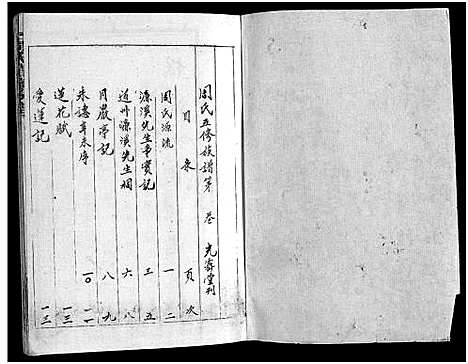 周氏五修族譜第 卷 光霽堂刊
目录 頁次
周氏源流 一 二
濂溪先生事實記 三 五
道州濂溪先生祠 六 八
月巖亭記 八 九
朱諺年表序 一〇 一一
蓮花賦 一三
愛蓮記 一三